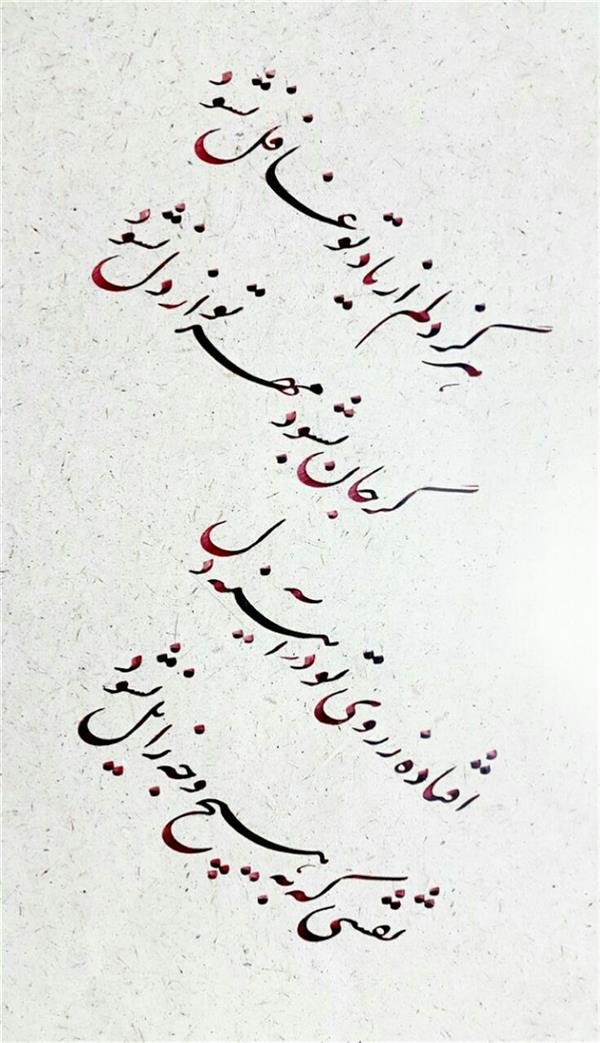 هرگز دلم از یاد تو غافل نشود
گر جان بشود مهر تو از دل نشود
افتاده ز روی تو در آیینه دل
نقشی که به هیچ وجه زایل نشود